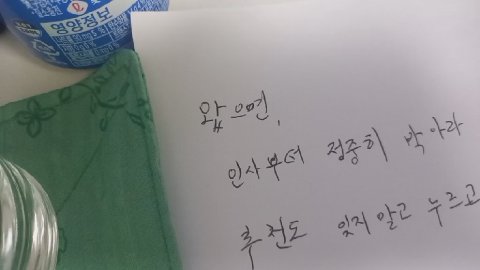 영양정보
왔으면,
인사부터 정중히 박아라
추천도 잊지말고 누르고